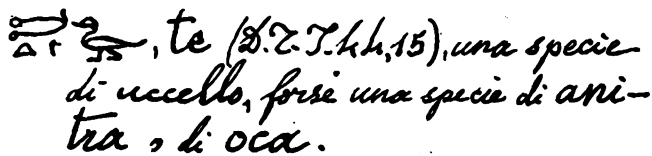 , te una specie
di uccello, forse una specie di ani-
tra o di oca.